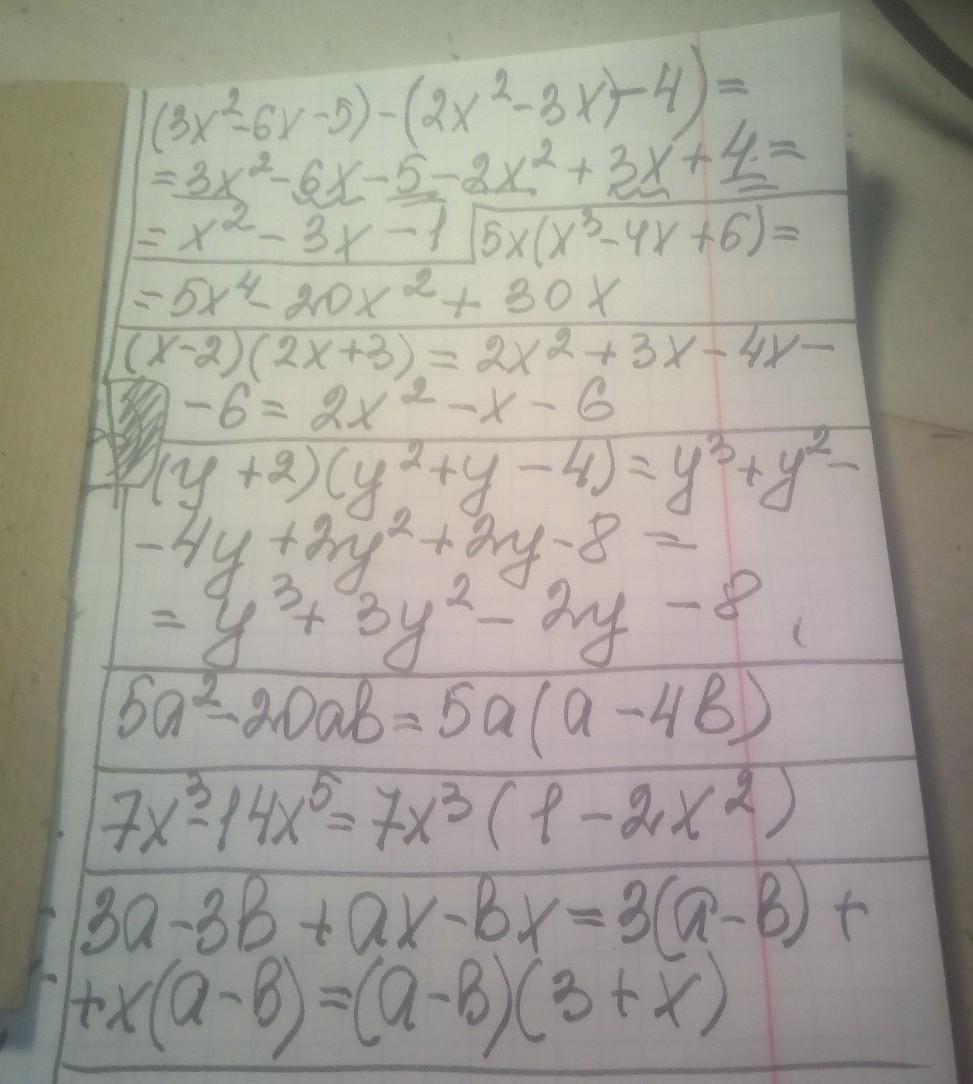 (3x²-6x-5)-(2x²-3x)-4)=
=3x²-6x-5-2x²+3x+4=
=x²-3x-1 5x(x³-4x+6)=
=5x⁴-20x²+30x
(x-2)(2x+3)=2x²+3x-4x-
-6=2x²-x-6
(y+2)(y²+y-4)=y³+y²-
-4y+2y²+2y-8=
=y³+3y²-2y-8
5a²-20ab=5a(a-4b)
7x³-14x⁵=7x³(1-2x²)
3a-3b+ax-bx=3(a-b)+
+x(a-b)=(a-b)(3+x)